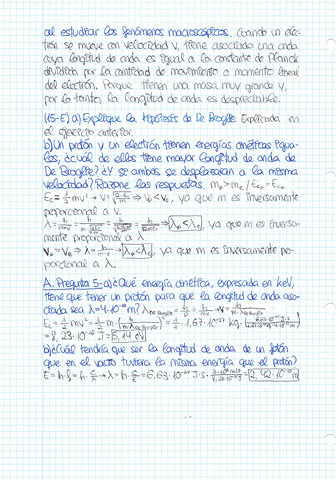 al estudiar los fenómenos macroscópicos. Cuando un elec-
trón se mueve con velocidad v, tiene asociado una onda
cuya longitud de onda es igual a la constante de Planck
dividida por la cantidad de movimiento o momento lineal
del electrón. Porque tienen una masa muy grande y,
por lo tanto, la longitud de onda es despreciable.
(15-E) a) Explique la hipótesis de De Broglie. Explicada en
el ejercicio anterior.
b) Un protón y un electrón tienen energías cinéticas igua-
les, ¿cuál de ellos tiene mayor longitud de onda de
De Broglie? ¿Y si ambos se desplazaran a la misma
velocidad? Razone las respuestas. mp > me / Ecp = Ece
Ec = 1/2 mv² → v = √(2·Ec/m) ⇒ vp < ve, ya que m es inversamente
proporcional a v.
⇒ λp < λe, ya que m es inversa-
mente proporcional a λ
vp = ve ⇒ λ = h/m·v → λp < λe, ya que m es inversamente pro-
porcional a λ.
A. Pregunta 5- a) ¿Qué energía cinética, expresada en keV,
tiene que tener un protón para que la longitud de onda aso-
ciada sea λ = 4·10⁻¹³ m?
= 8,23·10⁻¹⁶ J = 5,14 eV
b) ¿Cuál tendría que ser la longitud de onda de un fotón
que en el vacío tuviera la misma energía que el protón?
E = h·f = h·c/λ → λ = h·c/E = 6,63·10⁻³⁴ J·s · = 2,42·10⁻¹⁰ m